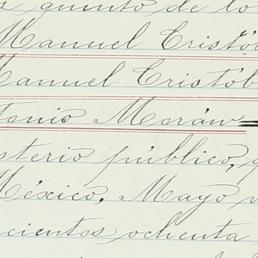 quinto de lo
Manuel Cristób
Manuel Cristób
tonio Moran
sterio público,
México, Mayo v
cientos ochenta